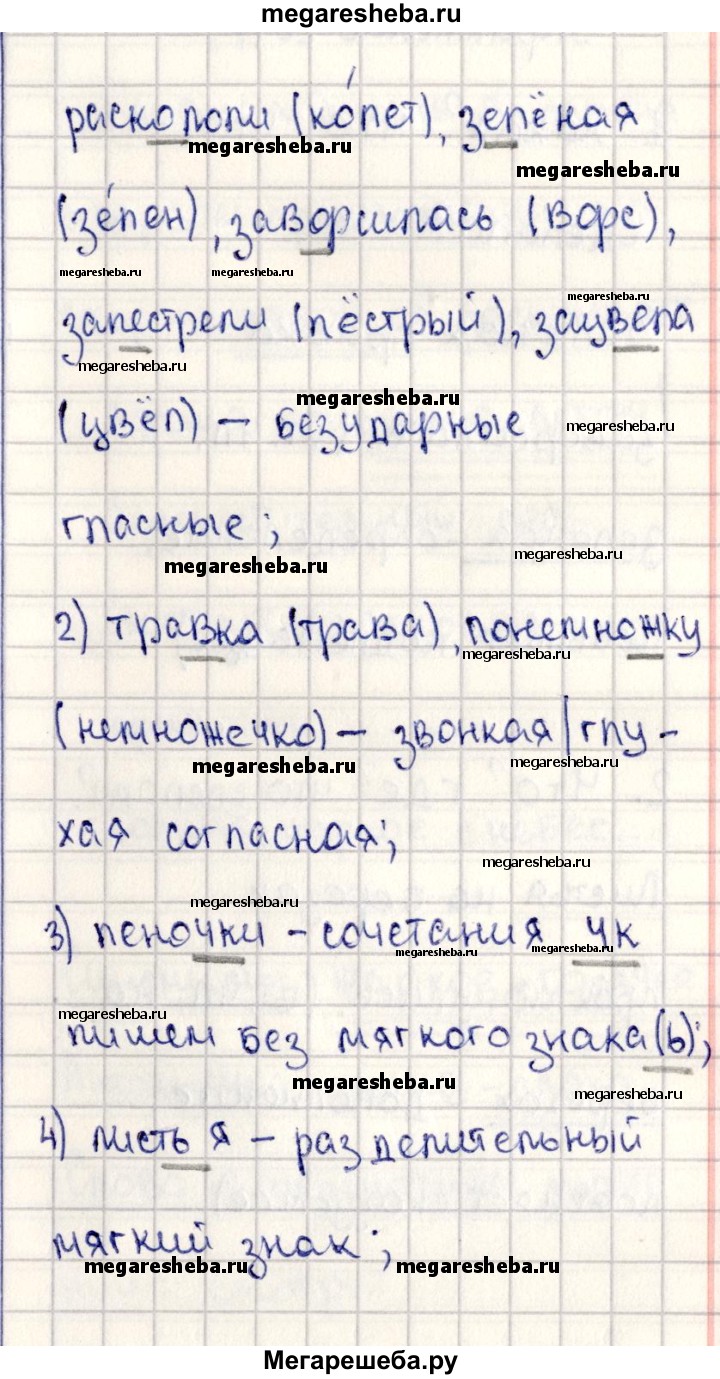 megaresheba.ru
раскололи (ко́лет), зелёная
megaresheba.ru
megaresheba.ru
(зе́лен), заворсилась (ворс),
megaresheba.ru megaresheba.ru
megaresheba.ru
запестрели (пёстрый), зацвела
megaresheba.ru
megaresheba.ru
(цвёл) – безударные
megaresheba.ru
гласные;
megaresheba.ru
megaresheba.ru
2) травка (трава), понемножку
megaresheba.ru
(немножечко) – звонкая/глу-
megaresheba.ru
хая согласная;
megaresheba.ru
megaresheba.ru
3) пеночки – сочетания чк
megaresheba.ru megaresheba.ru
megaresheba.ru
пишем без мягкого знака (ь);
megaresheba.ru
megaresheba.ru
4) листья – разделительный
мягкий знак;
megaresheba.ru megaresheba.ru
Мегарешеба.ру